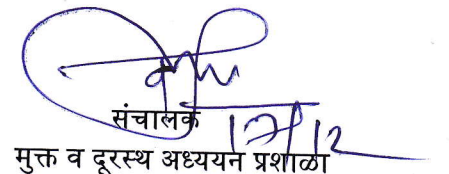 संचालक
मुक्त व दूरस्थ अध्ययन प्रशाळा